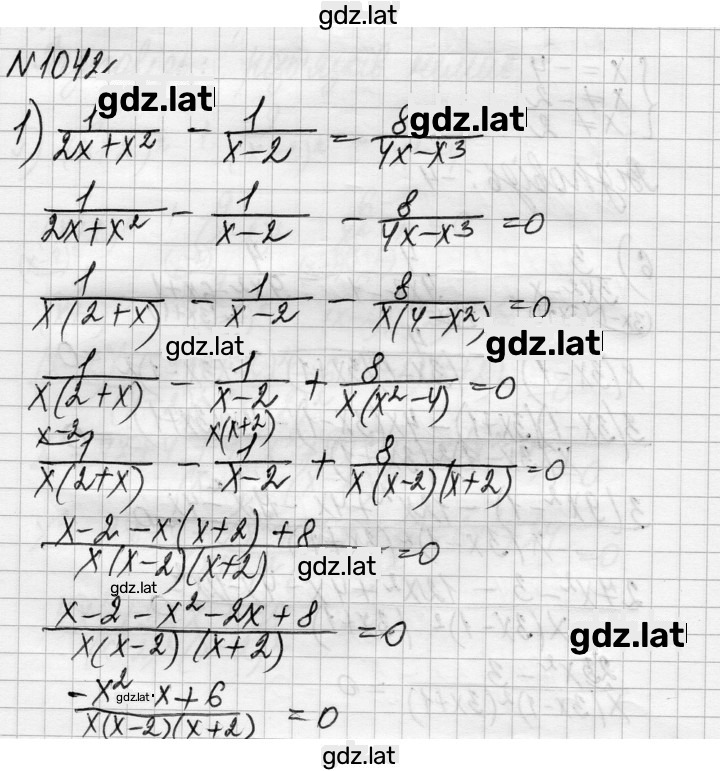 gdz.lat
N 1042
gdz.lat gdz.lat
1) 1/(2x+x²) - 1/(x-2) = 8/(4x-x³)
1/(2x+x²) - 1/(x-2) - 8/(4x-x³) = 0
1/(x(2+x)) - 1/(x-2) - 8/(x(4-x²)) = 0
gdz.lat gdz.lat
1/(x(2+x)) - 1/(x-2) + 8/(x(x²-4)) = 0
x-2 x(x+2)
1/(x(2+x)) - 1/(x-2) + 8/(x(x-2)(x+2)) = 0
(x-2-x(x+2)+8)/(x(x-2)(x+2)) = 0
gdz.lat gdz.lat
(x-2-x²-2x+8)/(x(x-2)(x+2)) = 0
gdz.lat
(-x²-x+6)/(x(x-2)(x+2)) = 0
gdz.lat
gdz.lat